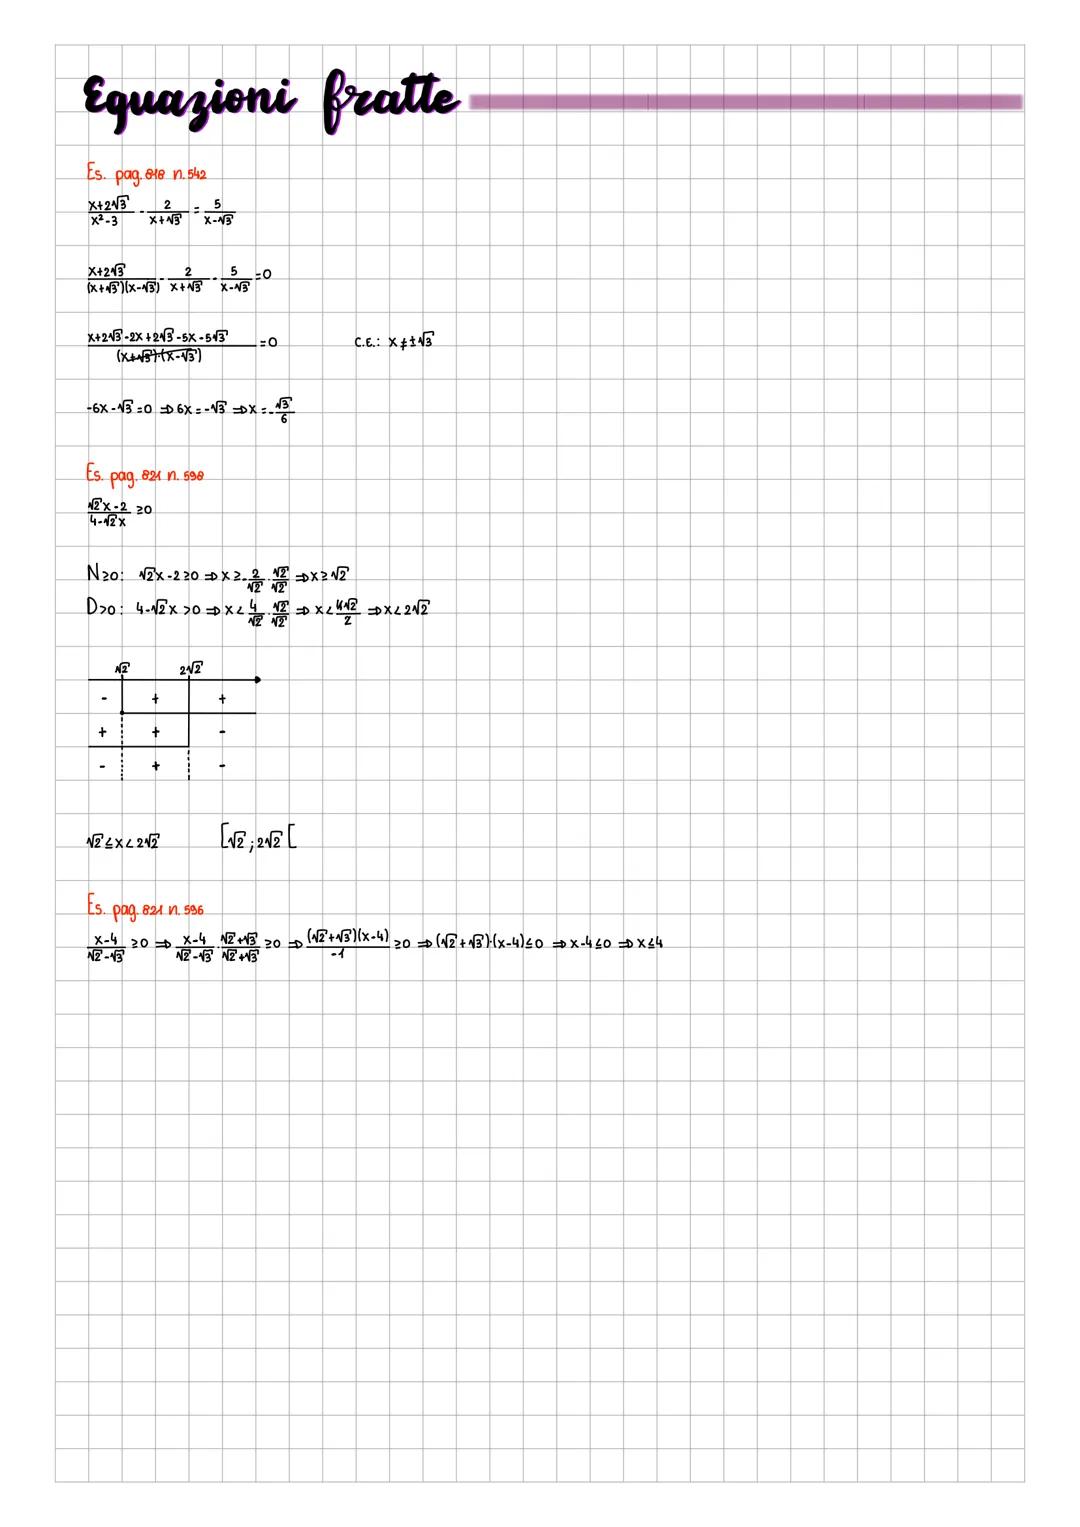 Equazioni fratte
Es. pag. 818 n. 542
(x+2√3)/(x²-3) - 2/(x+√3) = 5/(x-√3)
(x+2√3)/((x+√3)(x-√3)) - 2/(x+√3) - 5/(x-√3) = 0
(x+2√3-2x+2√3-5x-5√3)/((x+√3)·(x-√3)) = 0 C.E.: x≠±√3
-6x-√3=0 ⇒ 6x=-√3 ⇒ x=-√3/6
Es. pag. 821 n. 598
(√2x-2)/(4-√2x) ≥0
N≥0: √2x-2≥0 ⇒ x≥ 2/√2·√2/√2 ⇒ x≥√2
D>0: 4-√2x>0 ⇒ x< 4/√2·√2/√2 ⇒ x< 4√2/2 ⇒ x<2√2
√2 2√2
- + +
+ + -
- + -
√2≤x<2√2 [√2;2√2[
Es. pag. 821 n. 596
(x-4)/(√2-√3) ≥0 ⇒ (x-4)/(√2-√3)·(√2+√3)/(√2+√3) ≥0 ⇒ (√2+√3)(x-4)/-1 ≥0 ⇒ (√2+√3)·(x-4)≤0 ⇒ x-4≤0 ⇒ x≤4